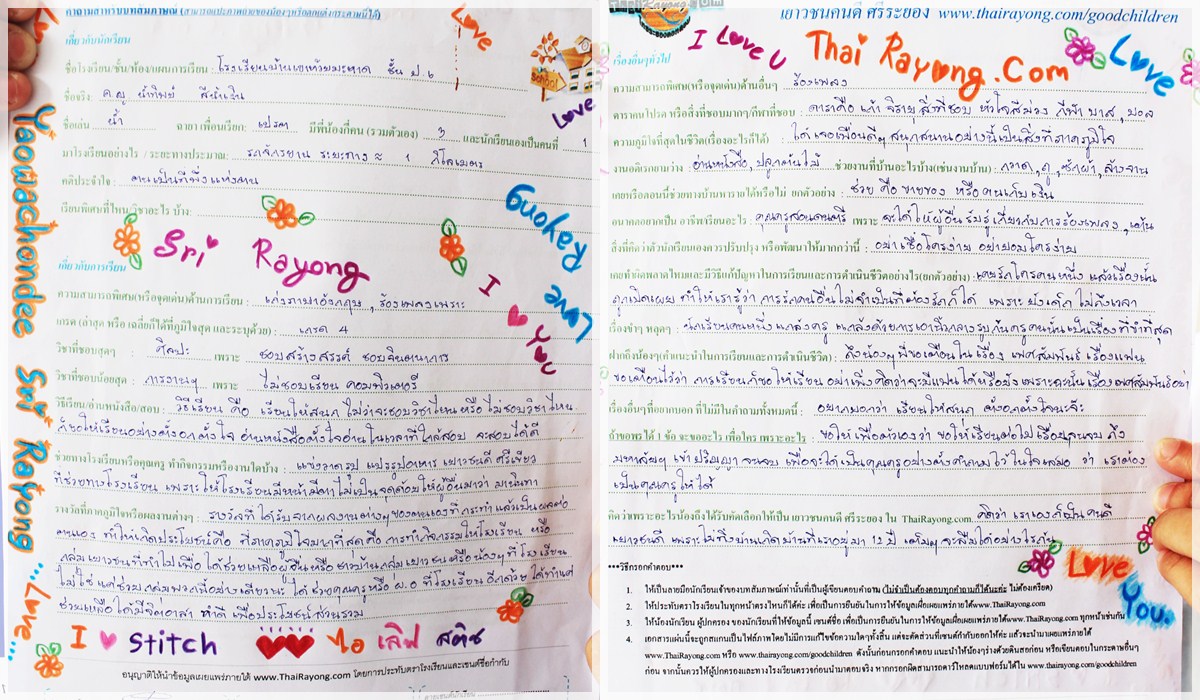 คำถามสำหรับบทสัมภาษณ์ (สามารถแปะภาพถ่ายของน้องๆหรือตกแต่งกระดาษนี้ได้)
Love
เกี่ยวกับนักเรียน
ชื่อโรงเรียน/ชั้น/ห้อง/แผนการเรียน : โรงเรียนบ้านเขาห้วยมะหาด ชั้น ป.6
School
Love
ชื่อจริง: ด.ญ น้ำทิพย์ สีน้ำเงิน
ชื่อเล่น น้ำ ฉายา เพื่อนเรียก: เปรตา มีพี่น้องกี่คน (รวมตัวเอง) 3 และนักเรียนเองเป็นคนที่ 1
มาโรงเรียนอย่างไร / ระยะทางประมาณ: รถจักรยาน ระยะทาง ≈ 1 กิโลเมตร
คติประจำใจ : ตนเป็นที่พึ่งแห่งตน
เรียนพิเศษที่ไหน/วิชาอะไร บ้าง:
Yaowachondee Sri Rayong ...Love...
Sri Rayong
Rayong
Love
I You
เกี่ยวกับการเรียน
ความสามารถพิเศษ(หรือจุดเด่น)ด้านการเรียน : เก่งภาษาอังกฤษ , ร้องเพลงเพราะ
เกรด (ล่าสุด หรือ เฉลี่ยก็ได้ที่ภูมิใจสุด และระบุด้วย) : เกรด 4
วิชาที่ชอบสุดๆ : ศิลปะ เพราะ ชอบสร้างสรรค์ ชอบจินตนาการ
วิชาที่ชอบน้อยสุด : การงานฯ เพราะ ไม่ชอบเรียน คอมพิวเตอร์
วิธีเรียน/อ่านหนังสือ/สอบ : วิธีเรียน คือ เรียนให้สนุก ไม่ว่าจะชอบวิชาไหน หรือ ไม่ชอบวิชาไหน
ก็ขอให้เรียนอย่างตั้งอกตั้งใจ อ่านหนังสือตั้งใจอ่านในเวลาที่ใกล้สอบ จะสอบได้ดี
ช่วยทางโรงเรียนหรือคุณครู ทำกิจกรรมหรืองานใดบ้าง : แข่งวาดรูป แปรรูปอาหาร เยาวชนดี ศรีเขียว
ที่ช่วยทางโรงเรียน เพราะให้โรงเรียนมีหน้ามีตา ไม่เป็นจุดด้อยให้ผู้อื่นมาว่า มานินทา
รางวัลที่ภาคภูมิใจหรือผลงานต่างๆ : รางวัลที่ได้รับจากผลงานต่างๆของตนเองที่กระทำ แล้วเป็นผลต่อ
ตนเอง ทำให้เกิดประโยชน์คือ ที่ภาคภูมิใจมากที่สุดคือ การทำกิจกรรมให้โรงเรียน หรือ
กลุ่มเยาวชนที่ทำไปเพื่อ ได้ช่วยเหลือผู้อื่น หรือ ชาวบ้าน กลุ่มเยาวชนหรือน้องๆ ที่โรงเรียน
ไม่ใช่ แค่ช่วยกลุ่มพวกเพื่ออย่างเดียวนะ ได้ช่วยคุณครูหรือ ผ.อ ที่โรงเรียนอีกด้วย ได้ทำแค่
ช่วยเหลือได้มีจิตอาสา ทำดี เพื่อประโยชน์ส่วนรวม
I Stitch ไอ เลิฟ สติช
อนุญาติให้นำข้อมูลเผยแพร่ภายใต้ www.ThaiRayong.com โดยการประทับตราโรงเรียนและเซนต์ชื่อกำกับ
เยาวชนคนดี ศรีระยอง www.thairayong.com/goodchildren
I Love U Thai Rayong.Com Love
เรื่องอื่นๆทั่วไป
ความสามารถพิเศษ(หรือจุดเด่น)ด้านอื่นๆ ร้องเพลง
ดาราคนโปรด หรือสิ่งที่ชอบมากๆ/กีฬาที่ชอบ : ดาราคือ เก้า จิรายุ สิ่งที่ชอบ หัวใจสีม่วง กีฬา บาส, บอล
ความภูมิใจที่สุดในชีวิต(เรื่องอะไรก็ได้) : ได้เจอเพื่อนดีๆ สนุกสนานอย่างนี้เป็นสิ่งที่ภาคภูมิใจ
งานอดิเรกยามว่าง : อ่านหนังสือ, ปลูกต้นไม้ ช่วยงานที่บ้านอะไรบ้าง(เช่นงานบ้าน) : กวาด, ถู, ซักผ้า, ล้างจาน
เคยหรือตอนนี้ช่วยทางบ้านหารายได้หรือไม่ ยกตัวอย่าง : ช่วย คือ ขายของ หรือ คนเก็บเงิน
อนาคตอยากเป็น อาชีพ/เรียนอะไร : คุณครูสอนดนตรี เพราะ จะได้ให้ผู้อื่นรับรู้เกี่ยวกับการร้องเพลง, เต้น
สิ่งที่คิดว่าตัวนักเรียนเองควรปรับปรุง หรือพัฒนาให้มากกว่านี้ : อย่าเชื่อใครง่าย อย่ายอมใครง่าย
เคยทำผิดพลาดไหมและมีวิธีแก้ปัญหาในการเรียนและการดำเนินชีวิตอย่างไร(ยกตัวอย่าง) : เคยรักใครคนหนึ่ง แล้วเรื่องนั้น
ถูกเปิดเผย ทำให้เรารู้ว่า การรักคนอื่นไม่จำเป็นที่ต้องรักก็ได้ เพราะ ยังเด็ก ไม่ถึงเวลา
เรื่องขำๆ หลุดๆ : นักเรียนคนหนึ่ง แกล้งครู แกล้งด้วยการเอานิ้วกลางชูกับครูคนนั้นเป็นเรื่องที่ขำที่สุด
ฝากถึงน้องๆ(คำแนะนำในการเรียนและการดำเนินชีวิต) : ถึงน้องๆ พี่ขอเตือนในเรื่อง เพศสัมพันธ์ เรื่องแฟน
ขอเตือนไว้ว่า การเรียนก็ขอให้เรียน อย่าเพิ่งคิดว่าจะมีแฟนได้หรือยัง เพราะฉะนั้นเรื่องเพศสัมพันธ์อย่า
เรื่องอื่นๆที่อยากบอก ที่ไม่มีในคำถามทั้งหมดนี้ : อยากบอกว่า เรียนให้สนุก ตั้งอกตั้งใจนะจ๊ะ
ถ้าขอพรได้ 1 ข้อ จะขออะไร เพื่อใคร เพราะอะไร : ขอให้ เพื่อตัวเองว่า ขอให้เรียนต่อไปเรื่อยๆจนจบ ถึง
มหาลัยฯ เข้าปริญญา จนจบ เพื่อจะได้เป็นคุณครูอย่างตั้งคำถามไว้ในใจเสมอ ว่า เราต้อง
เป็นคุณครูให้ได้
คิดว่าเพราะอะไรน้องถึงได้รับคัดเลือกให้เป็น เยาวชนคนดี ศรีระยอง ใน ThaiRayong.com คิดว่า เราเองก็เป็นคนดี
เยาวชนดี เพราะ บ้านที่เราอยู่มา 12 ปี จะลืมได้อย่างไรกัน
Love You.
***วิธีกรอกคำตอบ***
1. ให้เป็นลายมือนักเรียนเจ้าของบทสัมภาษณ์เท่านั้นที่เป็นผู้เขียนตอบคำถาม (ไม่จำเป็นต้องตอบทุกคำถามก็ได้นะค่ะ ไม่ต้องเครียด)
2. ให้ประทับตราโรงเรียนในทุกหน้าตรงไหนก็ได้ค่ะ เพื่อเป็นการยืนยันในการให้ข้อมูลเผื่อเผยแพร่ภายใต้www.ThaiRayong.com
3. ให้น้องนักเรียน ผู้ปกครอง ของนักเรียนที่ให้ข้อมูลนี้ เซนต์ชื่อ เพื่อเป็นการยืนยันในการให้ข้อมูลเผื่อเผยแพร่ภายใต้www.ThaiRayong.com ทุกหน้าเช่นกัน
4. เอกสารแผ่นนี้จะถูกสแกนเป็นไฟล์ภาพโดยไม่มีการแก้ไขข้อความใดๆทั้งสิ้น แต่จะตัดส่วนที่เซนต์กำกับออกให้ค่ะ แล้วจะนำมาเผยแพร่ภายใต้
www.ThaiRayong.com หรือ www.thairayong.com/goodchildren ดังนั้นก่อนกรอกคำตอบ แนะนำให้น้องๆร่างด้วยดินสอก่อน หรือเขียนตอบในกระดาษอื่นๆ
ก่อน จากนั้นควรให้ผู้ปกครองและทางโรงเรียนตรวจก่อนนำมาตอบจริง หากกรอกผิดสามารถดาว์โหลดแบบฟอร์มได้ใน www.thairayong.com/goodchildren